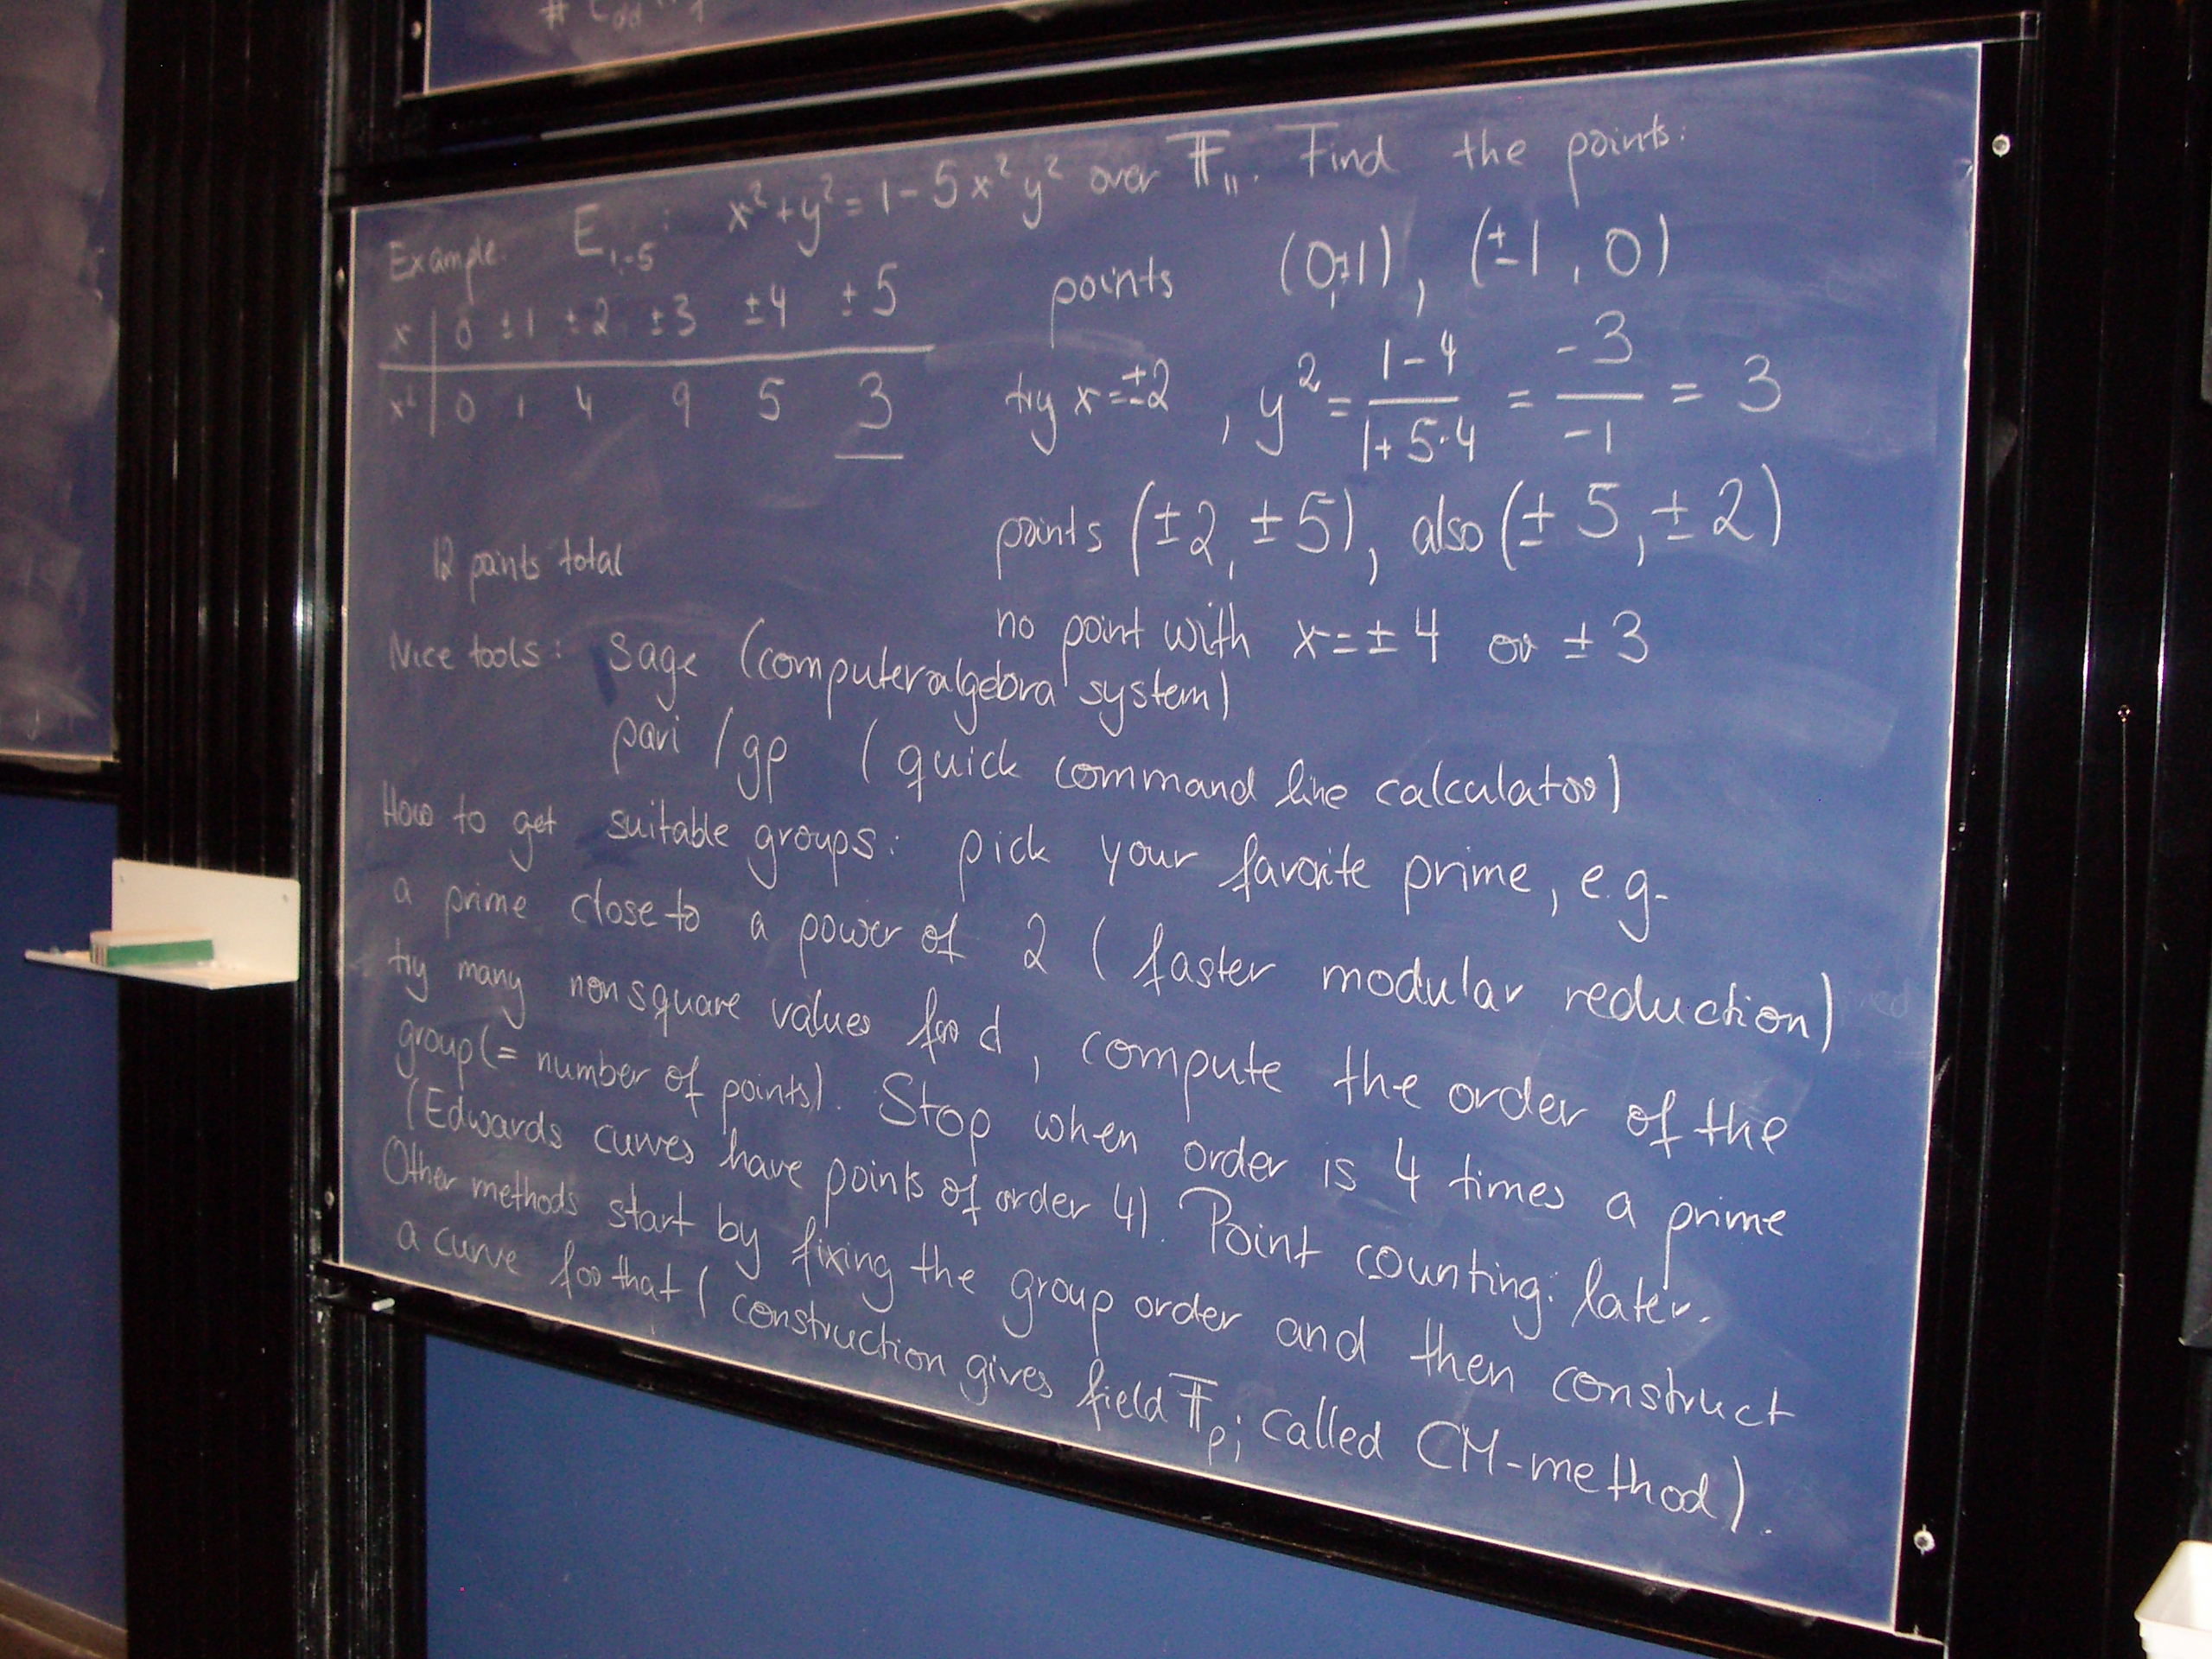 Example. E₁,₋₅ : x² + y² = 1 - 5x²y² over 𝔽₁₁. Find the points:
x | 0 ±1 ±2 ±3 ±4 ±5
x² | 0 1 4 9 5 3
points (0,±1), (±1, 0)
try x=±2, y² = (1-4)/(1+5·4) = -3/-1 = 3
points (±2, ±5), also (±5, ±2)
12 points total
no point with x=±4 or ±3
Nice tools: Sage (computeralgebra system)
pari /gp (quick command line calculator)
How to get suitable groups: pick your favorite prime, e.g.
a prime close to a power of 2 (faster modular reduction)
try many nonsquare values for d, compute the order of the
group (= number of points). Stop when order is 4 times a prime
(Edwards curves have points of order 4). Point counting: later.
Other methods start by fixing the group order and then construct
a curve for that (construction gives field 𝔽ₚ; called CM-method).